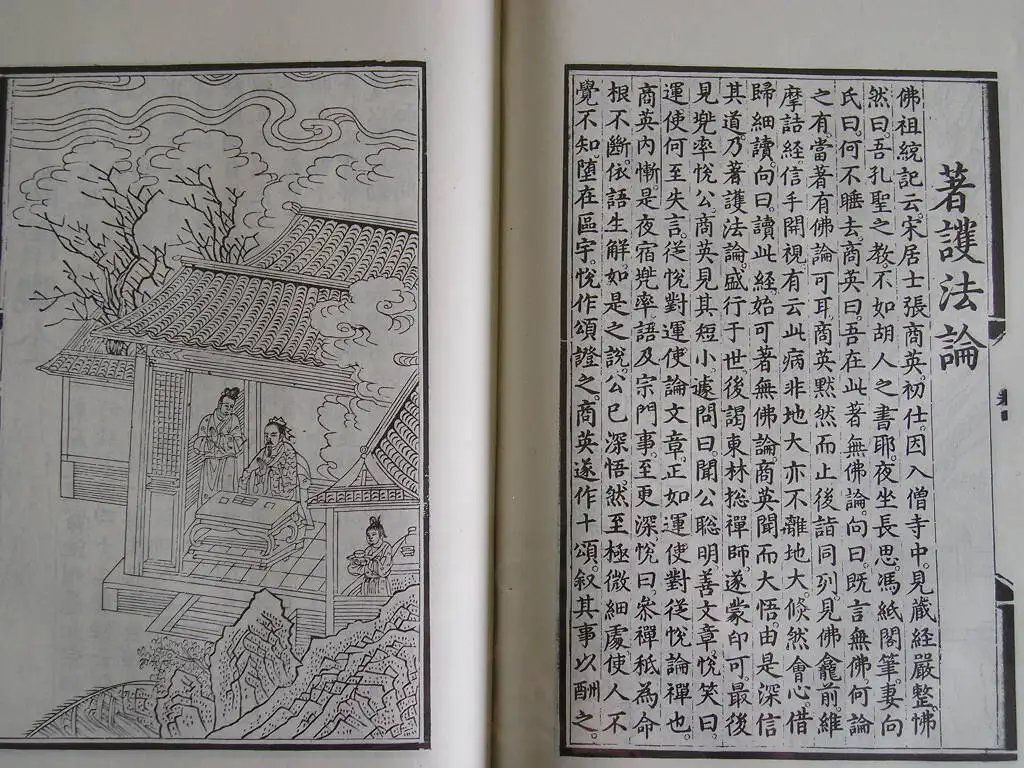 著護法論
佛祖統記云。宋居士張商英。初仕。因入僧寺中。見藏經嚴整。怫
然曰。吾孔聖之教。不如胡人之書耶。夜坐長思。馮紙閣筆。妻向
氏曰。何不睡去。商英曰。吾在此著無佛論。向曰。既言無佛。何論
之有。當著有佛論可耳。商英默然而止。後詣同列。見佛龕前維
摩詰經。信手開視。有云此病非地大。亦不離地大。倏然會心。借
歸細讀。向曰。讀此經。始可著無佛論。商英聞而大悟。由是深信
其道。乃著護法論。盛行于世。後謁東林揔禪師。遂蒙印可。最後
見兠率恱公。商英見其短小。遽問曰。聞公聰明善文章。恱笑曰。
運使何至失言。從恱對運使論文章。正如運使對從恱論禪也。
商英內慚。是夜宿兠率。語及宗門事。至更深。恱曰。叅禪秪為命
根不斷。依語生解。如是之說。公已深悟。然至極微細處。使人不
覺不知。墮在區宇。恱作頌證之。商英遂作十頌。叙其事以酬之。